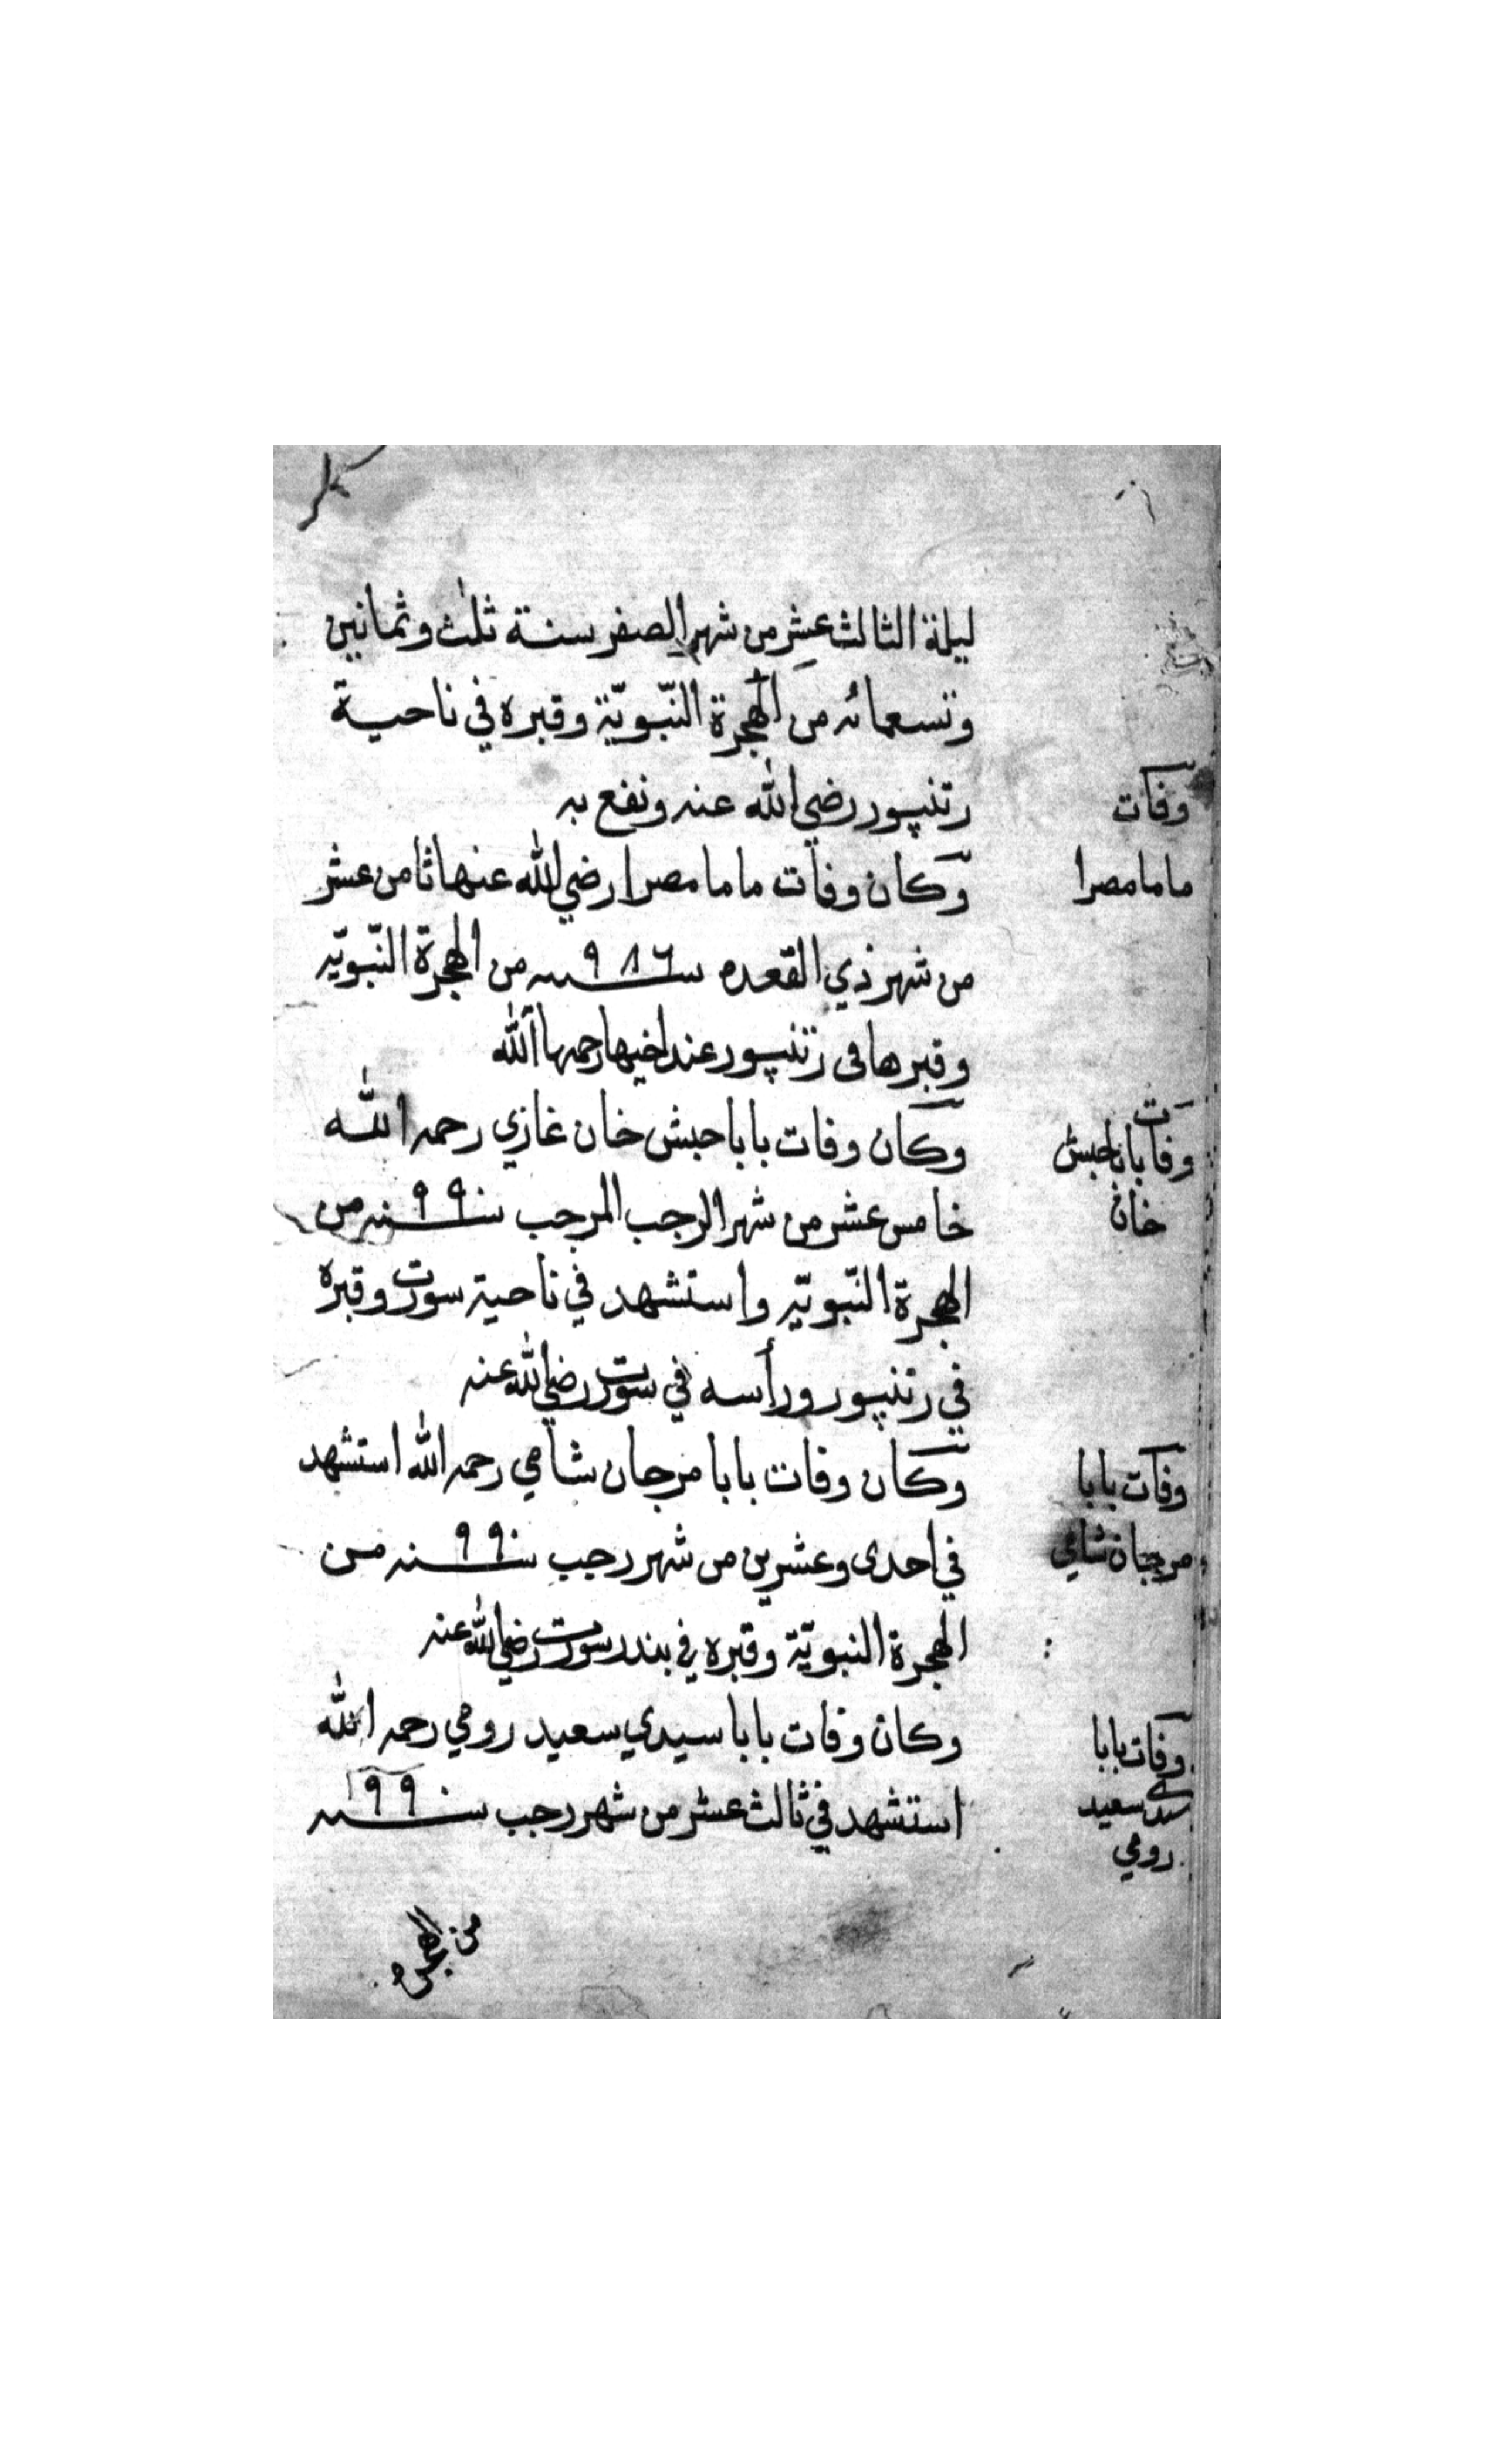 ليلة الثالث عشر من شهر الصفر سنة ثلٰث وثمانين
وتسعمائه من الهجرة النّبويّة وقبره في ناحية
رتنپور رضي الله عنه ونفع به
وفات
ماما مصرا
وكان وفات ماما مصرا رضي الله عنها ثامن عشر
من شهر ذي القعده سنه ٩٨٦ من الهجرة النّبويّه
وقبرها فى رتنپور عند اخيها رحمها الله
وفات بابا حبش
خان
وكان وفات بابا حبش خان غازي رحمه الله
خامس عشر من شهر الرجب المرجب سنه ٩٩٠ من
الهجرة النّبويّه واستشهد في ناحية سورت وقبره
في رتنپور ورأسه في سورت رضي الله عنه
وفات بابا
مرجان شامي
وكان وفات بابا مرجان شامي رحمه الله استشهد
في احدى وعشرين من شهر رجب سنه ٩٩٠ من
الهجرة النبويّة وقبره في بندر سورت رضي الله عنه
وفات بابا
سيدي سعيد
رومي
وكان وفات بابا سيدي سعيد رومي رحمه الله
استشهد في ثالث عشر من شهر رجب سنه ٩٩١
من الهجره